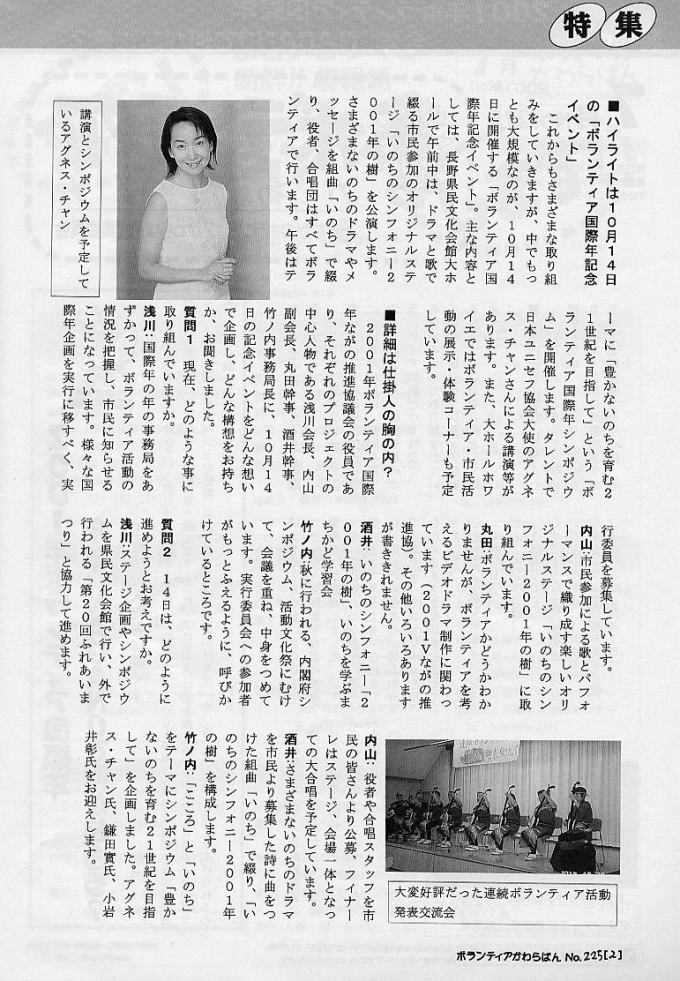 特集
■ハイライトは10月14日
の「ボランティア国際年記念
イベント」
これからもさまざまな取り組
みをしていきますが、中でもっ
とも大規模なのが、10月14
日に開催する「ボランティア国
際年記念イベント」。主な内容と
しては、長野県民文化会館大ホ
ールで午前中は、ドラマと歌で
綴る市民参加のオリジナルステ
ージ「いのちのシンフォニー2
001年の樹」を公演します。
さまざまないのちのドラマやメ
ッセージを組曲「いのち」で綴
り、役者、合唱団はすべてボラ
ンティアで行います。午後はテ
講演とシンポジウムを予定して
いるアグネス・チャン
ーマに「豊かないのちを育む2
1世紀を目指して」という「ボ
ランティア国際年シンポジウ
ム」を開催します。タレントで
日本ユニセフ協会大使のアグネ
ス・チャンさんによる講演等が
あります。また、大ホールホワ
イエではボランティア・市民活
動の展示・体験コーナーも予定
しています。
■詳細は仕掛人の胸の内?
2001年ボランティア国際
年ながの推進協議会の役員であ
り、それぞれのプロジェクトの
中心人物である浅川会長、内山
副会長、丸田幹事、酒井幹事、
竹ノ内事務局長に、10月14
日の記念イベントをどんな想い
で企画し、どんな構想をお持ち
か、お聞きしました。
質問1 現在、どのような事に
取り組んでいますか。
浅川:国際年の年の事務局をあ
ずかって、ボランティア活動の
情況を把握し、市民に知らせる
ことになっています。様々な国
際年企画を実行に移すべく、実
行委員を募集しています。
内山:市民参加による歌とパフォ
ーマンスで織り成す楽しいオリ
ジナルステージ「いのちのシン
フォニー2001年の樹」に取
り組んでいます。
丸田:ボランティアかどうかわか
りませんが、ボランティアを考
えるビデオドラマ制作に関わっ
ています(2001Vながの推
進協)。その他いろいろあります
が書ききれません。
酒井:いのちのシンフォニー「2
001年の樹」、いのちを学ぶま
ちかど学習会
竹ノ内:秋に行われる、内閣府シ
ンポジウム、活動文化祭にむけ
て、会議を重ね、中身をつめて
います。実行委員会への参加者
がもっとふえるように、呼びか
けているところです。
質問2 14日は、どのように
進めようとお考えですか。
浅川:ステージ企画やシンポジウ
ムを県民文化会館で行い、外で
行われる「第20回ふれあいま
つり」と協力して進めます。
内山:役者や合唱スタッフを市
民の皆さんより公募、フィナー
レはステージ、会場一体となっ
ての大合唱を予定しています。
酒井:さまざまないのちのドラマ
を市民より募集した詩に曲をつ
けた組曲「いのち」で綴り、「い
のちのシンフォニー2001年
の樹」を構成します。
竹ノ内:「こころ」と「いのち」
をテーマにシンポジウム「豊か
ないのちを育む21世紀を目指
して」を企画しました。アグネ
ス・チャン氏、鎌田實氏、小岩
井彰氏をお迎えします。
大変好評だった連続ボランティア活動
発表交流会
ボランティアかわらばん No.225[2]